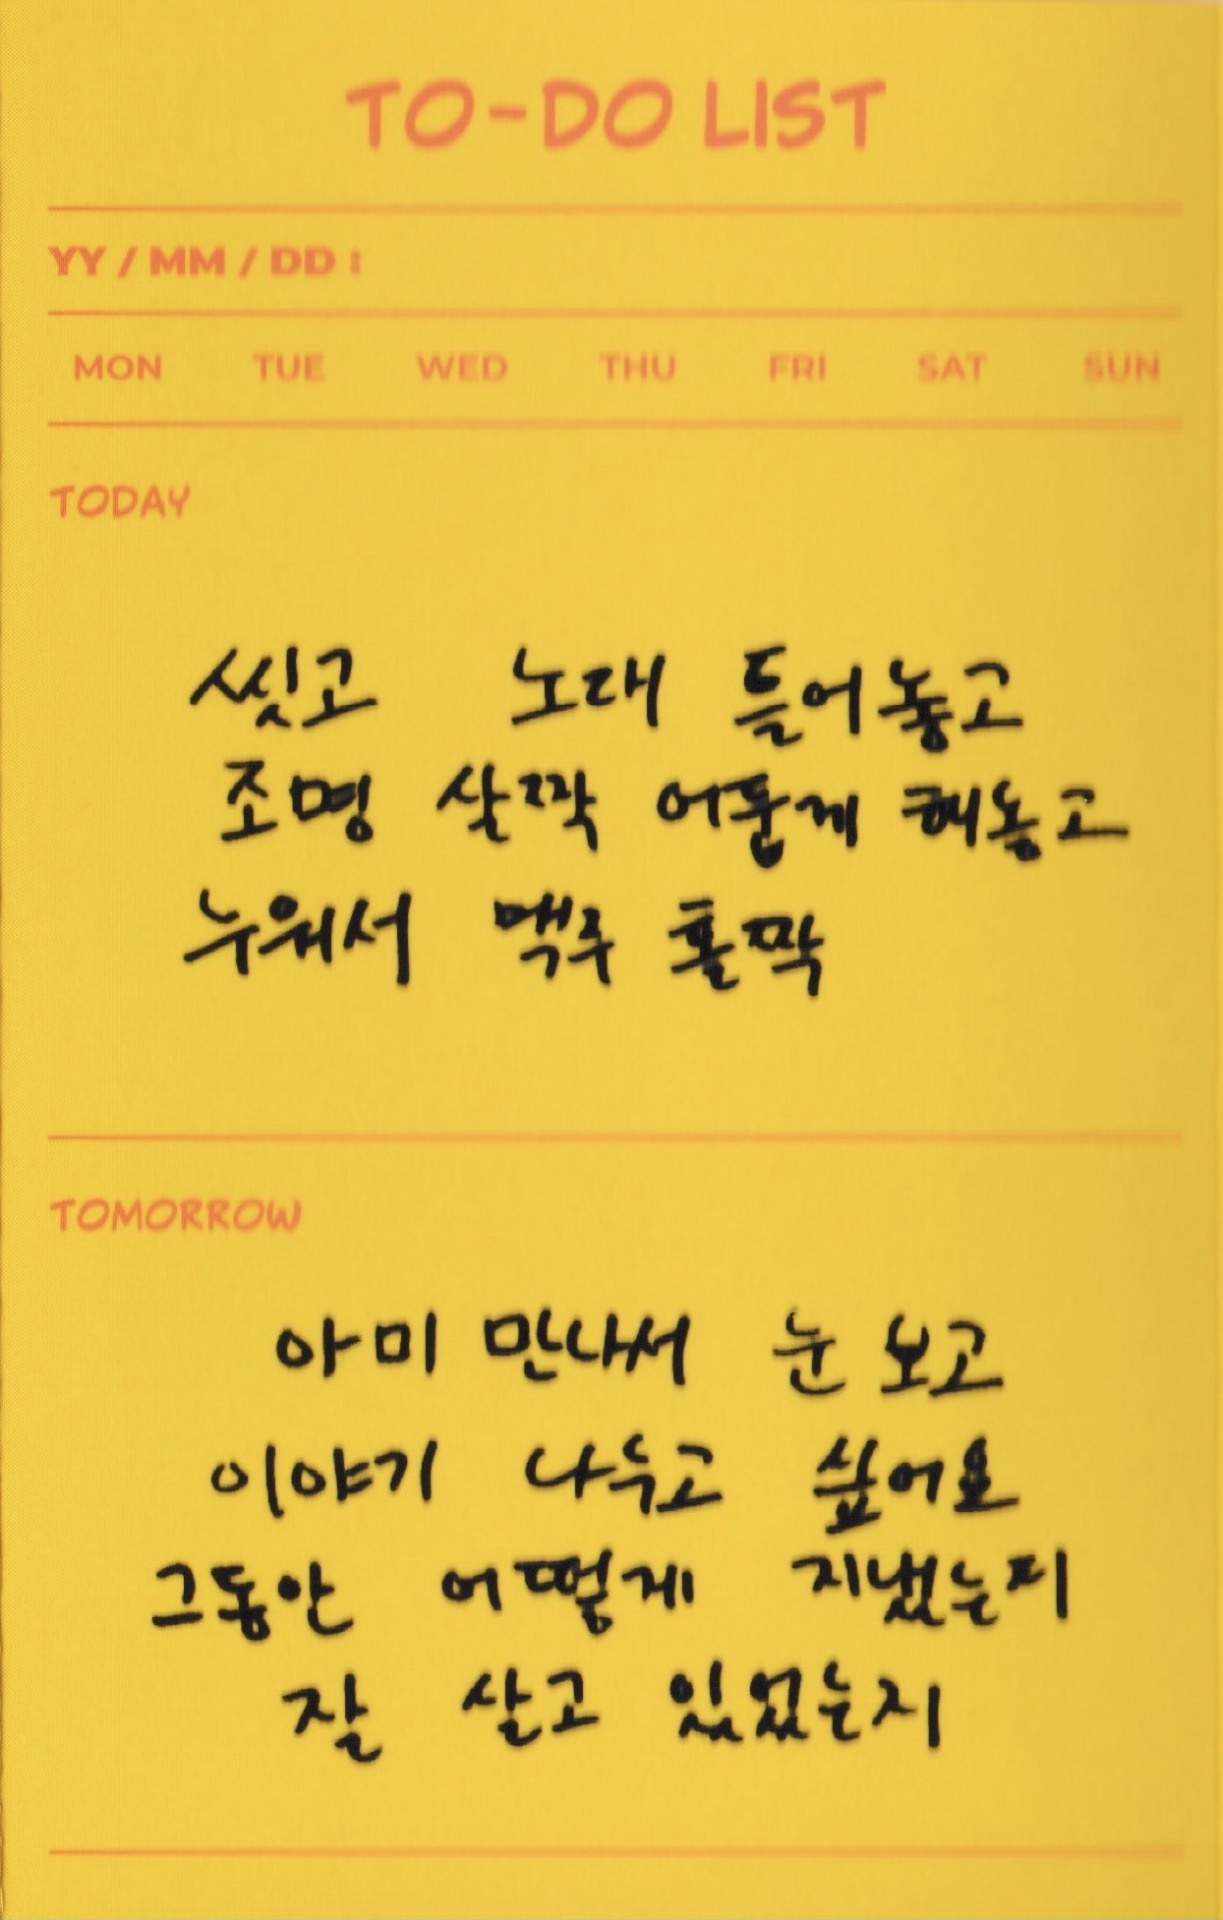 TO-DO LIST
YY / MM / DD :
MON TUE WED THU FRI SAT SUN
TODAY
씻고 노래 틀어놓고
조명 살짝 어둡게 해놓고
누워서 맥주 홀짝
TOMORROW
아미 만나서 눈 보고
이야기 나누고 싶어요
그동안 어떻게 지냈는지
잘 살고 있었는지